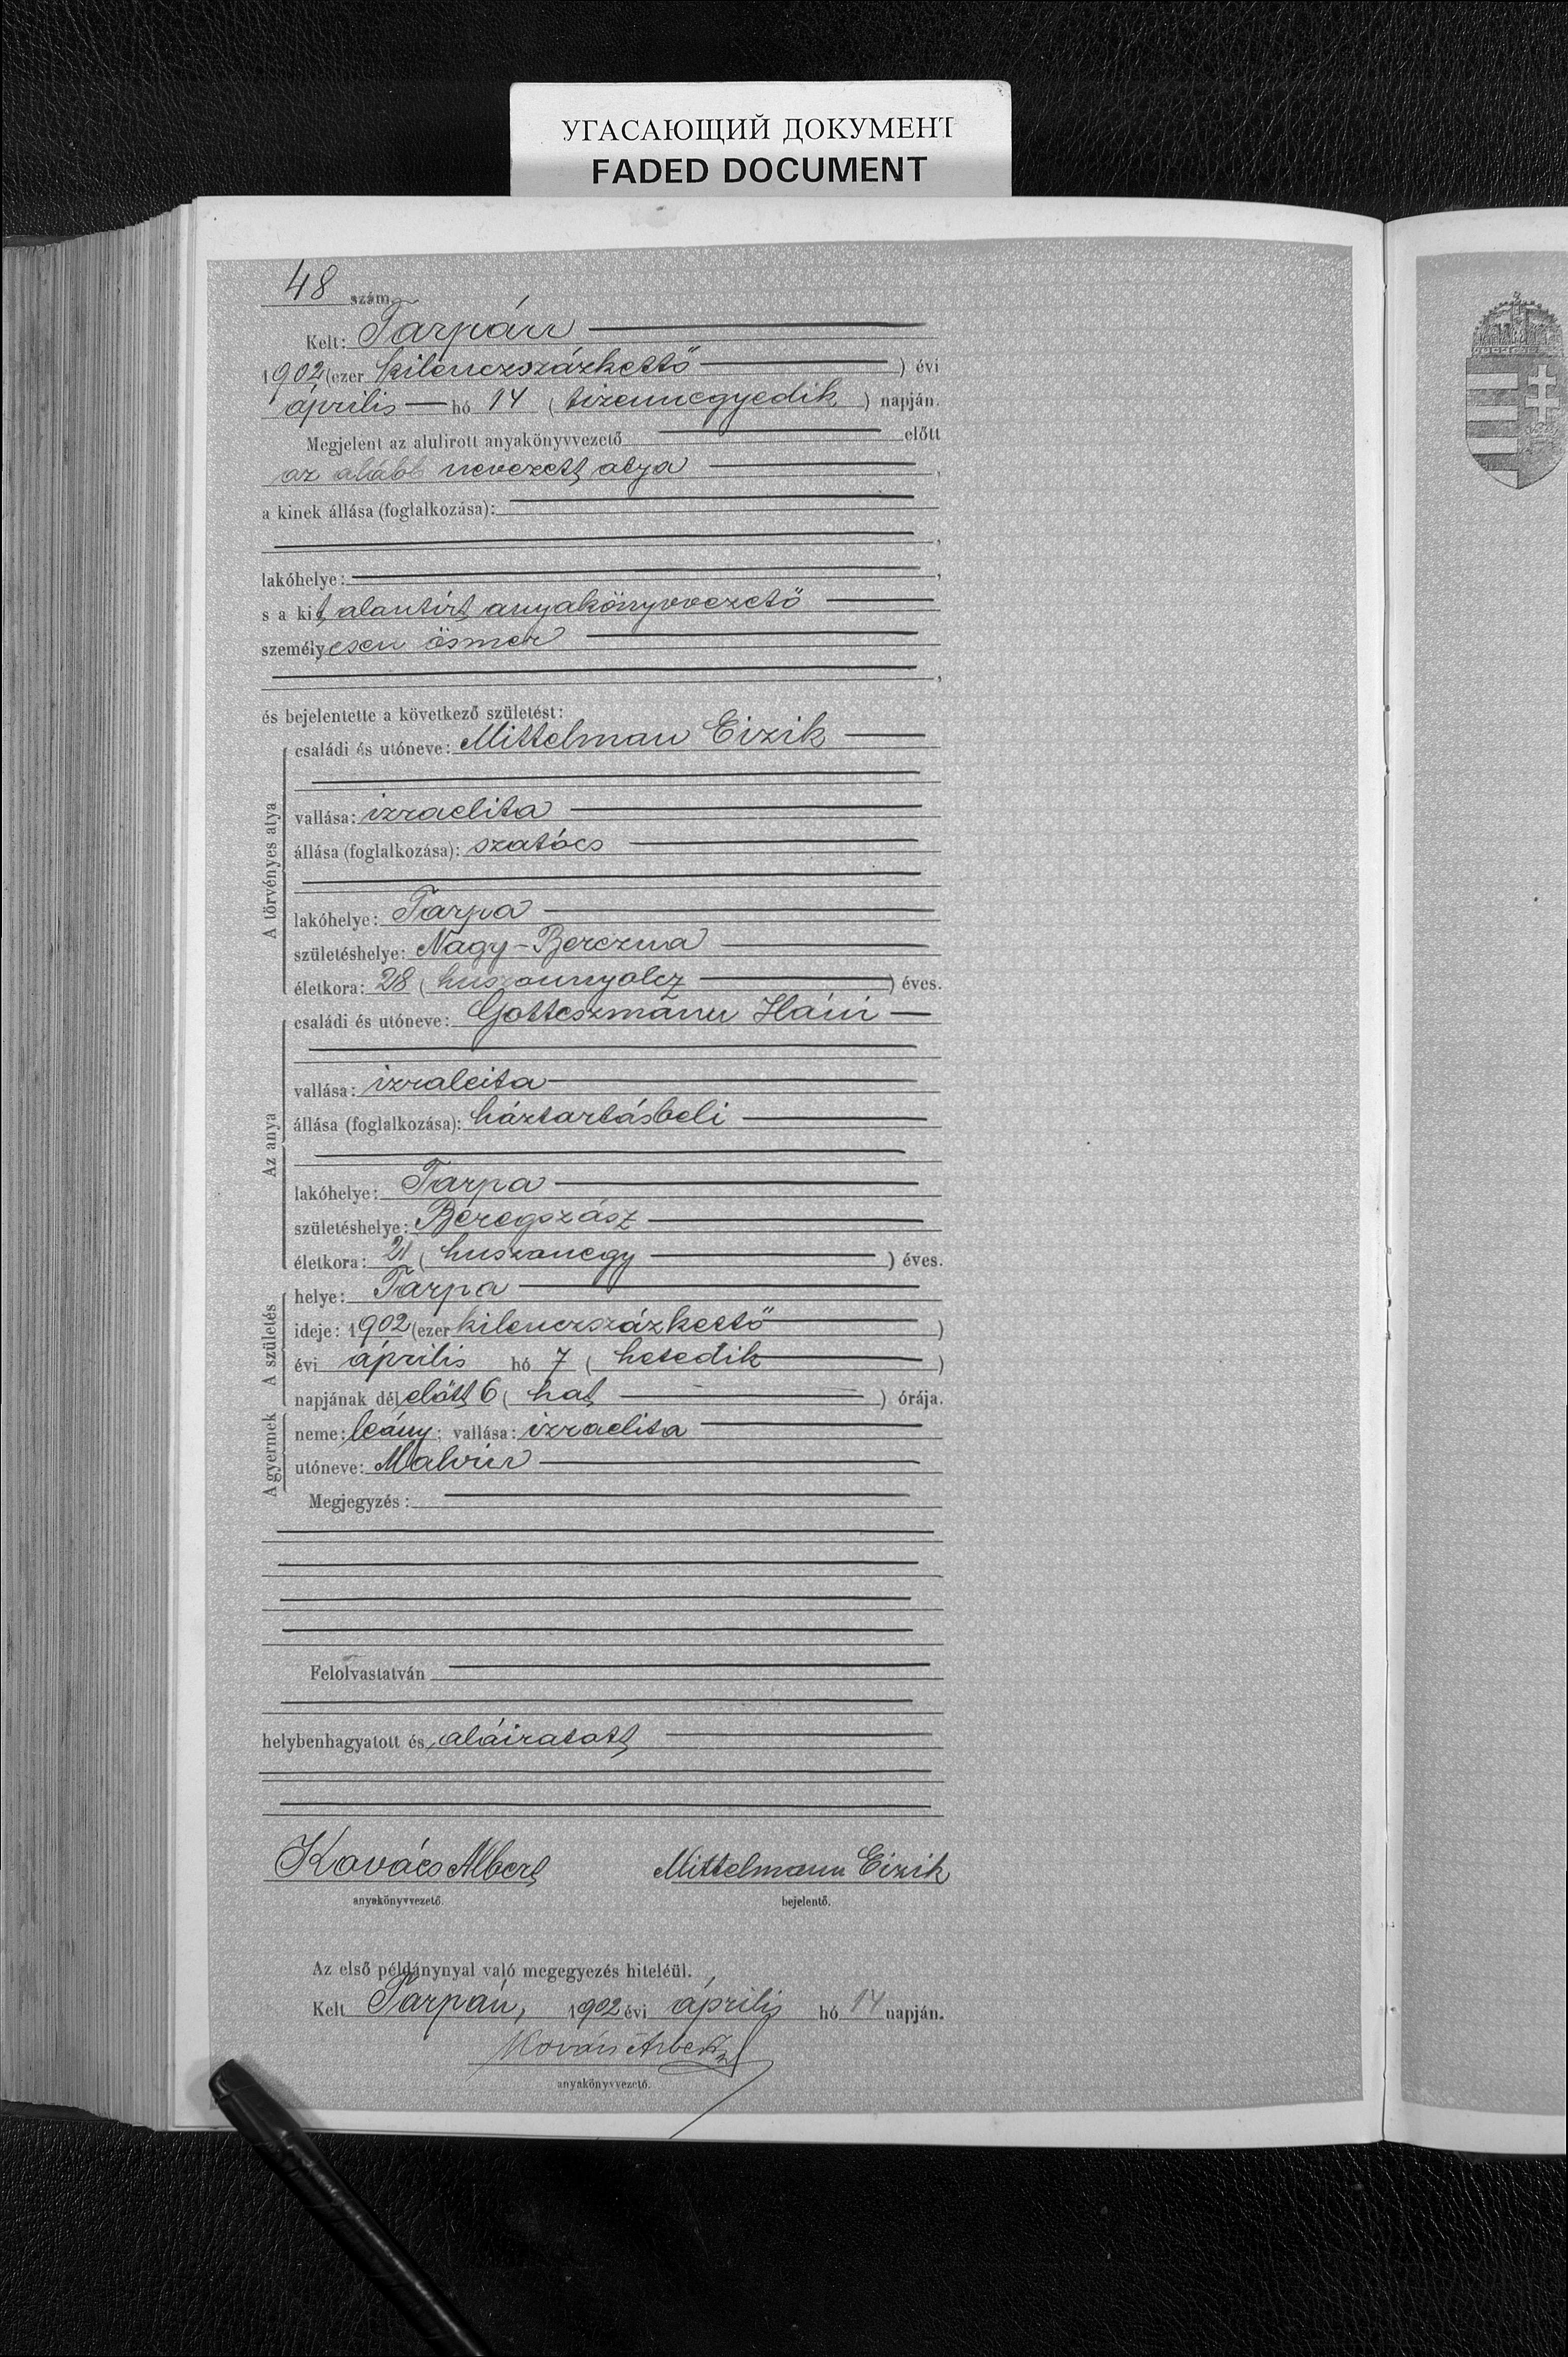 УГАСАЮЩИЙ ДОКУМЕНТ
FADED DOCUMENT
48 szám
Kelt: Tarpán
1902 (ezer kilenczszázkettő ) évi
április hó 14 ( tizennegyedik ) napján.
Megjelent az alulirott anyakönyvvezető előtt
az alább nevezett atya ,
a kinek állása (foglalkozása):
,
lakóhelye: ,
s a kit alantirt anyakönyvvezető
személyesen ösmer
,
és bejelentette a következő születést:
A törvényes atya
családi és utóneve: Mittelman Eizik
vallása: izraelita
állása (foglalkozása): szatócs
lakóhelye: Tarpa
születéshelye: Nagy-Berezna
életkora: 28 ( huszonnyolcz ) éves.
Az anya
családi és utóneve: Gotteszmánn Háni
vallása: izraleita
állása (foglalkozása): háztartásbeli
lakóhelye: Tarpa
születéshelye: Beregszász
életkora: 21 ( huszonegy ) éves.
A születés
helye: Tarpa
ideje: 1902 (ezer kilenczszázkettő )
évi április hó 7 ( hetedik )
napjának délelőtt 6 ( hat ) órája.
A gyermek
neme: leány; vallása: izraelita
utóneve: Malvin
Megjegyzés:
Felolvastatván
helybenhagyatott és aláiratott
Kovács Albert Mittelmann Eizik
anyakönyvvezető. bejelentő.
Az első példánynyal való megegyezés hiteléül.
Kelt Tarpán, 1902 évi április hó 14 napján.
Kovács Albert
anyakönyvvezető.